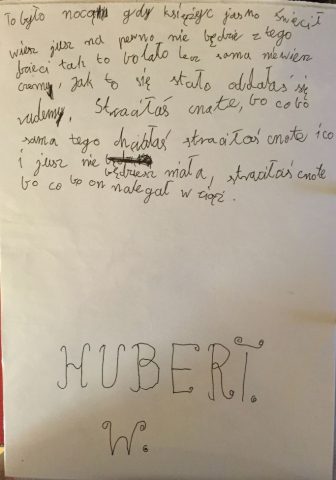 To było nocą gdy księżyc jasno świecił
wiesz jusz na pewno nie będzie z tego
dzieci tak to bolało lecz sama niewiesz
czemu, jak to się stało oddałaś się
rudemu, Straciłaś cnote, bo co bo
sama tego chciałaś straciłaś cnote i co
i jusz nie będziesz mała, straciłaś cnote
bo co bo on nalegał w ciąż.
HUBERT.
W.